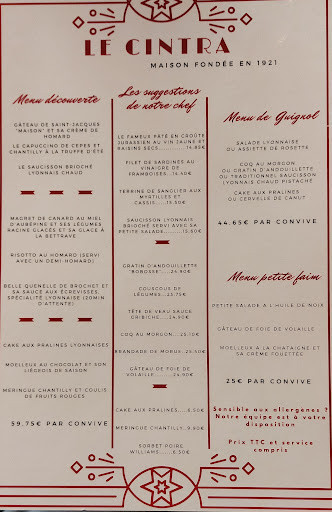 LE CINTRA
MAISON FONDÉE EN 1921
Menu découverte
GÂTEAU DE SAINT-JACQUES
"MAISON" ET SA CRÈME DE
HOMARD
LE CAPUCCINO DE CEPES ET
CHANTILLY À LA TRUFFE D'ÉTÉ
LE SAUCISSON BRIOCHÉ
LYONNAIS CHAUD
MAGRET DE CANARD AU MIEL
D'AUBÉPINE ET SES LÉGUMES
RACINE GLACÉS ET SA GLACE À
LA BETTRAVE
RISOTTO AU HOMARD (SERVI
AVEC UN DEMI HOMARD)
BELLE QUENELLE DE BROCHET ET
SA SAUCE AUX ÉCREVISSES,
SPÉCIALITÉ LYONNAISE (20MIN
D'ATTENTE)
CAKE AUX PRALINES LYONNAISES
MOELLEUX AU CHOCOLAT ET SON
LIÉGEOIS DE SAISON
MERINGUE CHANTILLY ET COULIS
DE FRUITS ROUGES
59.75€ PAR CONVIVE
Les suggestions
de notre chef
LE FAMEUX PÂTÉ EN CROÛTE
JURASSIEN AU VIN JAUNE ET
RAISINS SECS.........15.80€
FILET DE SARDINES AU
VINAIGRE DE
FRAMBOISES...14.50€
TERRINE DE SANGLIER AUX
MYRTILLES ET
CASSIS....13.50€
SAUCISSON LYONNAIS
BRIOCHÉ SERVI AVEC SA
PETITE SALADE.........15.60€
GRATIN D'ANDOUILLETTE
"BOBOSSE"....24.90€
COUSCOUS DE
LÉGUMES...23.75€
TÊTE DE VEAU SAUCE
GRIBICHE....24.90€
COQ AU MORGON....25.10€
BRANDADE DE MORUE..25.50€
GÂTEAU DE FOIE DE
VOLAILLE.........24.90€
CAKE AUX PRALINES.....8.50€
MERINGUE CHANTILLY..9.80€
SORBET POIRE
WILLIAMS......8.50€
Menu de Guignol
SALADE LYONNAISE
OU ASSIETTE DE ROSETTE
COQ AU MORGON
OU GRATIN D'ANDOUILLETTE
OU TRADITIONNEL SAUCISSON
LYONNAIS CHAUD PISTACHÉ
CAKE AUX PRALINES
OU CERVELLE DE CANUT
44.65€ PAR CONVIVE
Menu petite faim
PETITE SALADE À L'HUILE DE NOIX
GÂTEAU DE FOIE DE VOLAILLE
MOELLEUX À LA CHATAIGNE ET
SA CRÈME FOUETTÉE
25€ PAR CONVIVE
Sensible aux allergènes ?
Notre équipe est à votre
disposition
Prix TTC et service
compris